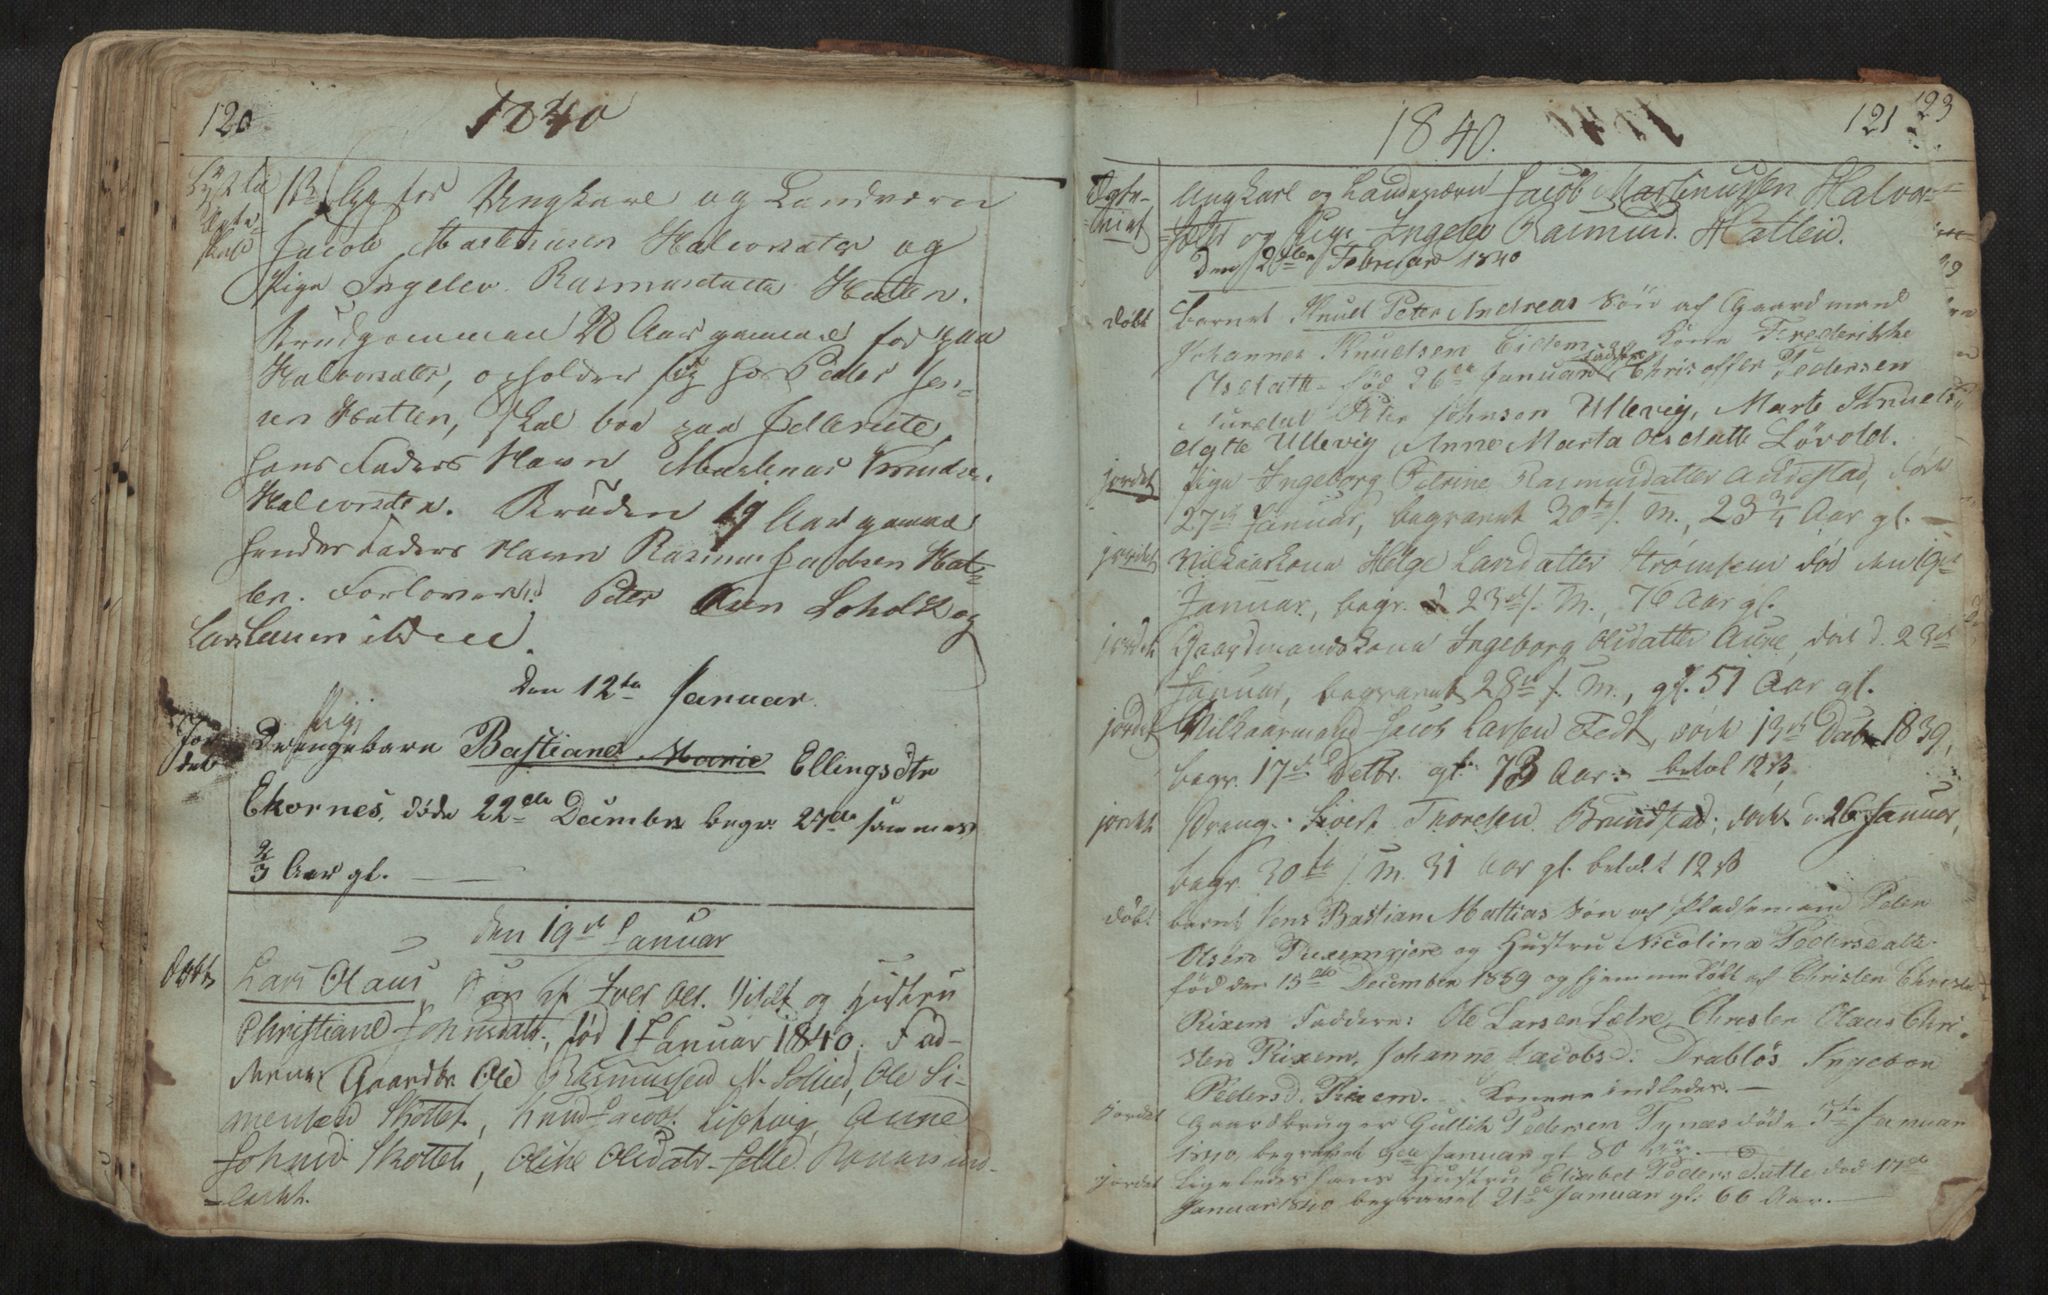 120
1840
Lyst til
Ægte-
skab
1ste Gg for Ungkarl og Landværn
Jacob Martinusen Halvorsæter og
Pige Ingelev Rasmusdatte Hatlen.
Brudgommen 28 Aar gammel fød paa
Halvorsæter, opholder sig hos Peder Jen-
sen Hatlen, skal boe paa
hans Faders Navn Martinus
Halvorsæter. Bruden 19 Aar gammel
hendes Faders Navn Rasmus Jacobsen Hat-
len. Forlovere: Peter Olsen Loholdt og
Lars
den 12te Januar
Jor
det
Pige
Drengebarn Bastiane Marie Ellingsdtr
Ekornes, døde 22de Decembr begr. 27de sammes
2/3 Aar gl.
den 19de Januar
Døbt
Lars Olaus, Søn af Iver Ols. og Hustru
Christiane Johnsdatt., fød 1 Januar 1840. Fad-
derne: Gaardbr Ole Rasmussen N. Sollied, Ole Si-
mensen Skottet, Knud Jacobs. Anne
Johnsd. Skottet, Oline Olsdatr Konen ind-
ledet.
1840.
121
123
Ungkarl og Landeværn Jacob Martinussen Halvor-
sæter og Pige Ingelev Rasmusd. Hatlen.
den 2den Februar 1840
døbt
barnet Knud Peter Andreas Søn af Gaardmand
Johannes Knudsen og Kone Frederikke
Olsdatte fød 26de Januar Faddere Christoffer Pedersen
Peter Johnsen Ullevig, Marte Knuds-
datte Ullevig, Anne Marta Olsdatte Løvold.
jordet
Pige Ingeborg Petrine Rasmusdatter Aurstad, død
27de Januar, begravet 30te s. M., 23 3/4 Aar gl.
jordet
Vilkaarskone Helge Larsdatter død den 19de
Januar, begr. d 23de s. M., 76 Aar gl.
jordet
Gaardmandskone Ingeborg Olsdatter Aure, død d. 23de
Januar, begravet 28de s. M., gl. 51 Aar gl.
jordet
Vilkaarmand Jacob Larsen Fedt, døde 13de Decbr 1839,
begr. 17de Decbr. gl. 73 Aar. betal 12 ß
jordet
Dreng. Sivert Thoresen Brunstad, døde d. 26 Januar,
begr. 30te s. M. 31 Aar gl. betalt 12 ß
døbt
barnet Jens Bastian Mattias Søn af Pladsemand Peder
Olsen Rixemgjere og Hustru Nicolina Pedersdatte
fød den 15de December 1839 og hjemmedøbt af Christen Christe
Rixem Faddere: Ole Larsen Sætre, Christen Olaus Chri-
sten Rixem, Johanne Jacobsd. Drabløs Ingebor
Pedersd. Rixem. Konen indledes.
jordet
Gaardbruger Gullik Pedersen Tynæs døde 5te Januar
1840 begravet 9de Januar gl 80 Aar.
jordet
Ligeledes hans Hustru Elisabet Pedersdatte død 17de
Januar 1840 begravet 21de Januar gl: 66 Aar.